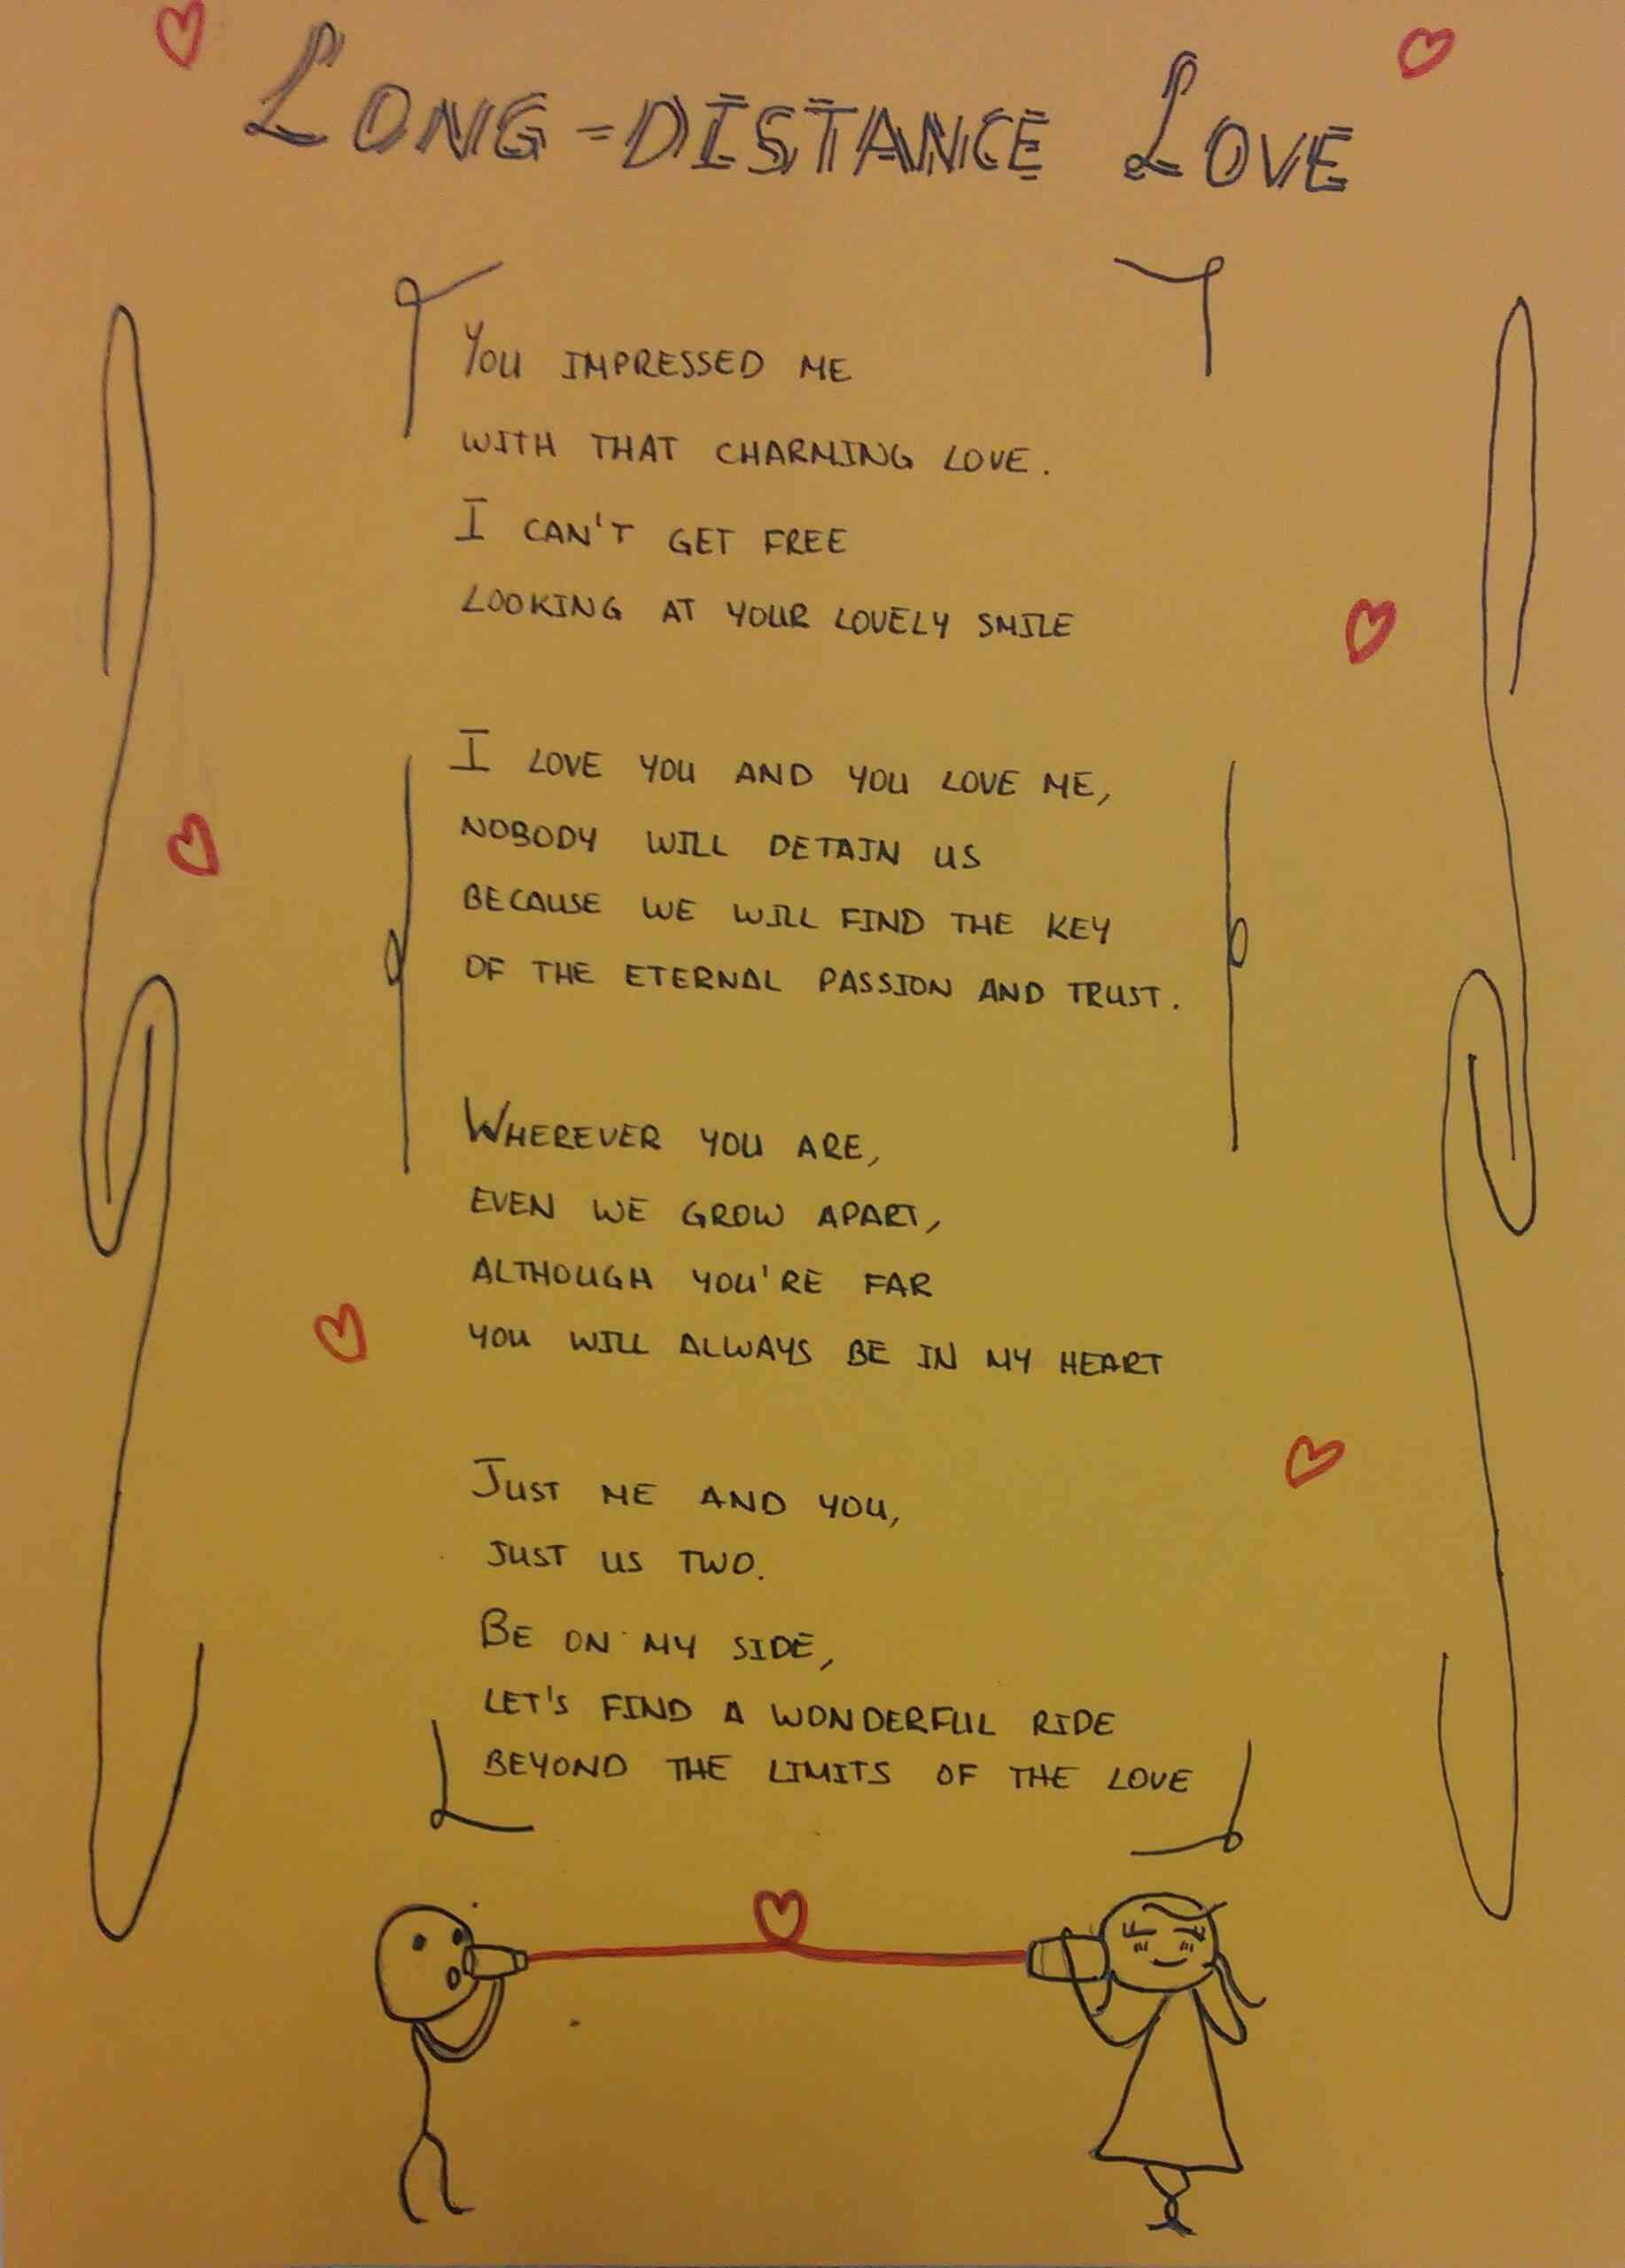 LONG-DISTANCE LOVE
YOU IMPRESSED ME
WITH THAT CHARMING LOVE.
I CAN'T GET FREE
LOOKING AT YOUR LOVELY SMILE
I LOVE YOU AND YOU LOVE ME,
NOBODY WILL DETAIN US
BECAUSE WE WILL FIND THE KEY
OF THE ETERNAL PASSION AND TRUST.
WHEREVER YOU ARE,
EVEN WE GROW APART,
ALTHOUGH YOU'RE FAR
YOU WILL ALWAYS BE IN MY HEART
JUST ME AND YOU,
JUST US TWO.
BE ON MY SIDE,
LET'S FIND A WONDERFUL RIDE
BEYOND THE LIMITS OF THE LOVE